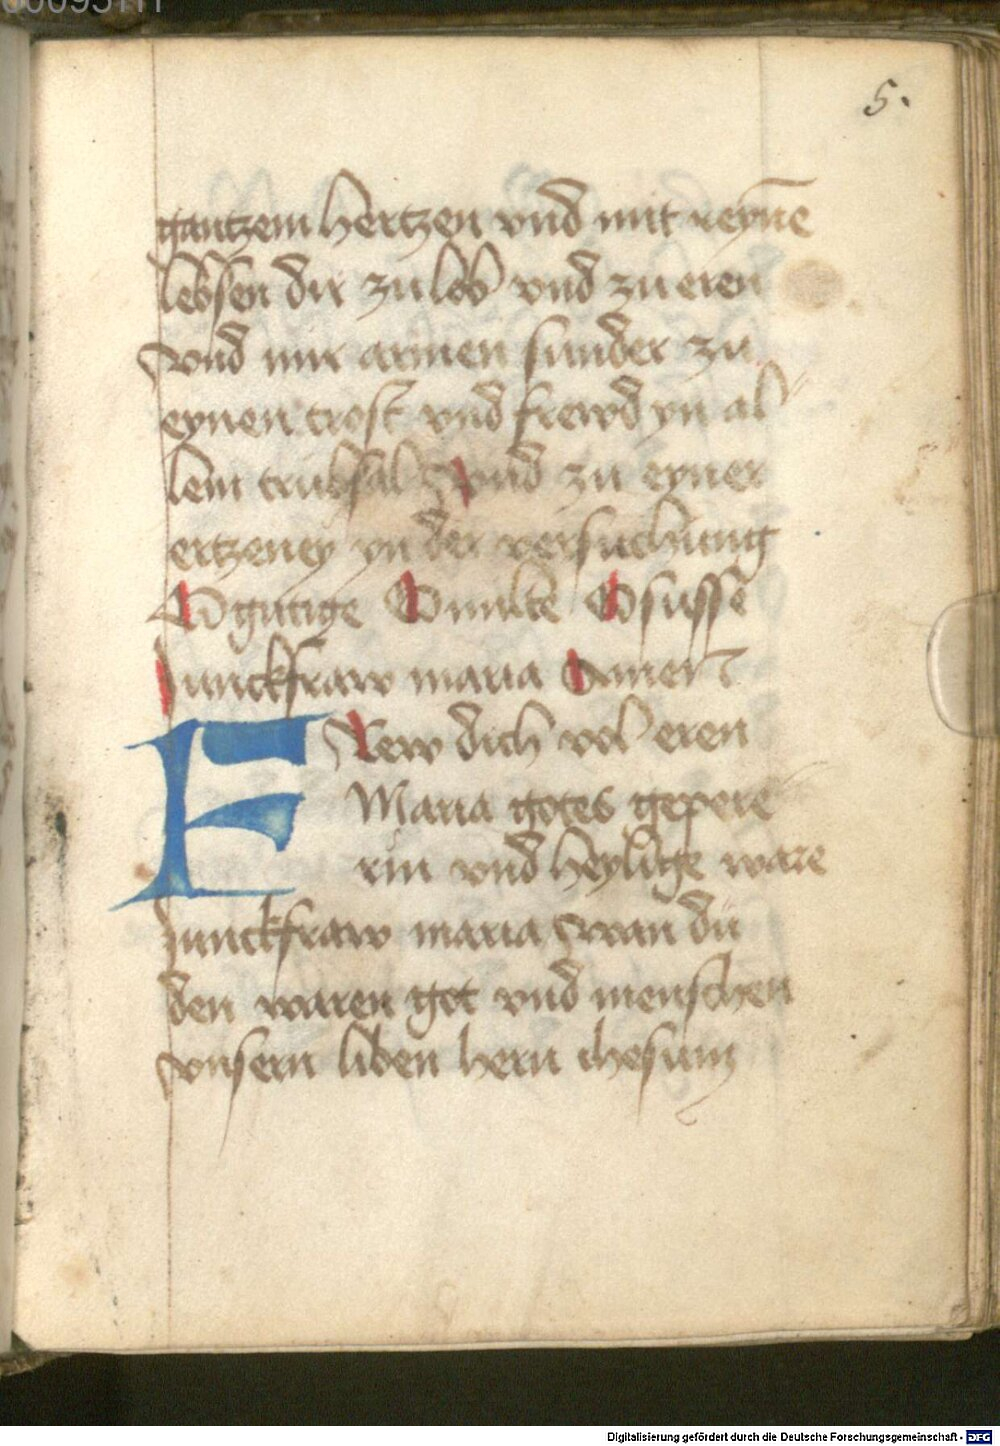 5.
gantzem hertzen vnd mit reynē
lebsen dir zu lob vnd zu eren
vnd mir armen sunder zu
eynen trost vnd frewd yn al
lem trubsal Vnd zu eyner
ertzeney yn der versuchung
O gutige O milte O susse
Junckfraw maria Amen
FRew dich vol eren
Maria gotes gepere
rin vnd heylige ware
Junckfraw maria wan du
den waren got vnd menschen
vnsern liben hern ihesum
Digitalisierung gefördert durch die Deutsche Forschungsgemeinschaft - DFG